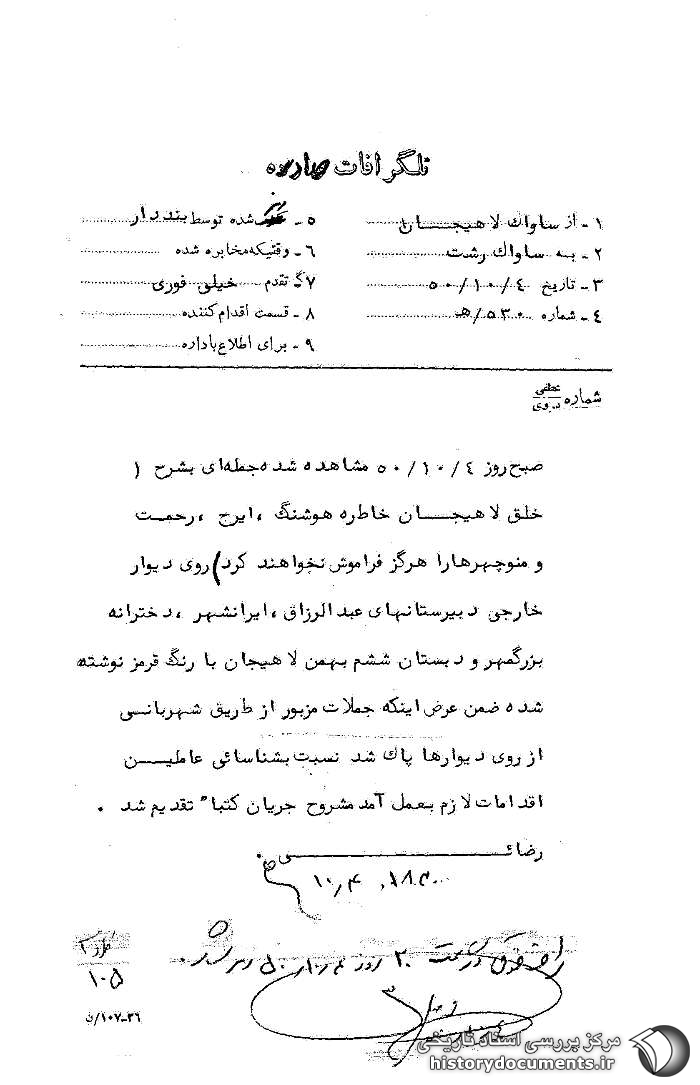 تلگرافات صادره
۱ - از ساواك لاهیجــان
۲ - به ساواك رشت
۳ - تاریخ ۵۰/۱۰/۴
۴ - شماره ۵۳۰/هـ
۵ - شده توسط بندار
۶ - وقتیکه مخابره شده
۷ - تقدم خیلی فوری
۸ - قسمت اقدام کننده
۹ - برای اطلاع باداره
شماره عطفی پیروی
صبح روز ۵۰/۱۰/۴ مشاهده شده جمله‌ای بشرح (
خلق لاهیجــان خاطره هوشنگ ، ایرج ، رحمت
و منوچهرها را هرگز فراموش نخواهند کرد) روی دیوار
خارجی دبیرستانهای عبدالرزاق ، ایرانشهر ، دخترانه
بزرگمهر و دبستان ششم بهمن لاهیجان با رنگ قرمز نوشته
شده ضمن عرض اینکه جملات مزبور از طریق شهربانــی
از روی دیوارها پاك شد نسبت بشناسائی عاملیــن
اقدامات لازم بعمل آمد مشروح جریان کتبا" تقدیم شد .
رضائــــی
۱۰/۴
۱۰۵
۳۶-۱۰۷/ن
مرکز بررسی اسناد تاریخی
historydocuments.ir